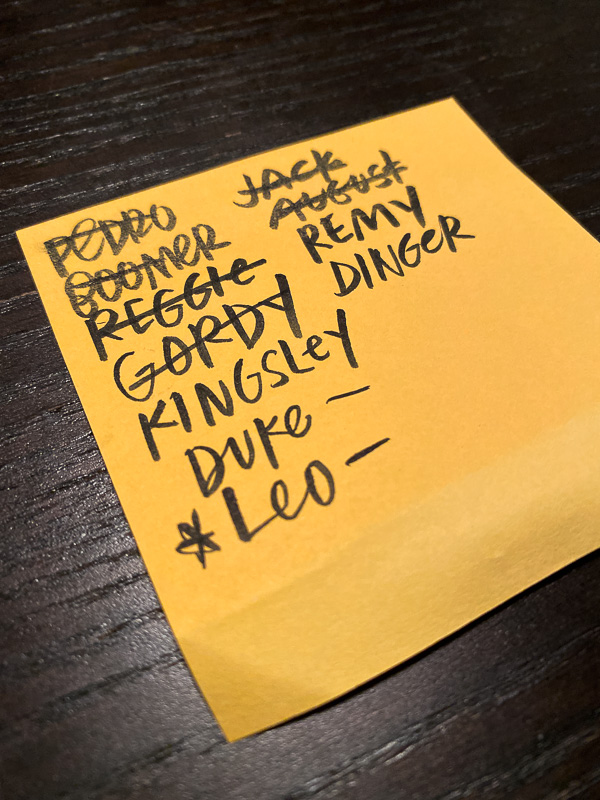 PEDRO
BOOMER
REGGIE
GORDY
KINGSLEY
DUKE —
* LEO —
JACK
AUGUST
REMY
DINGER